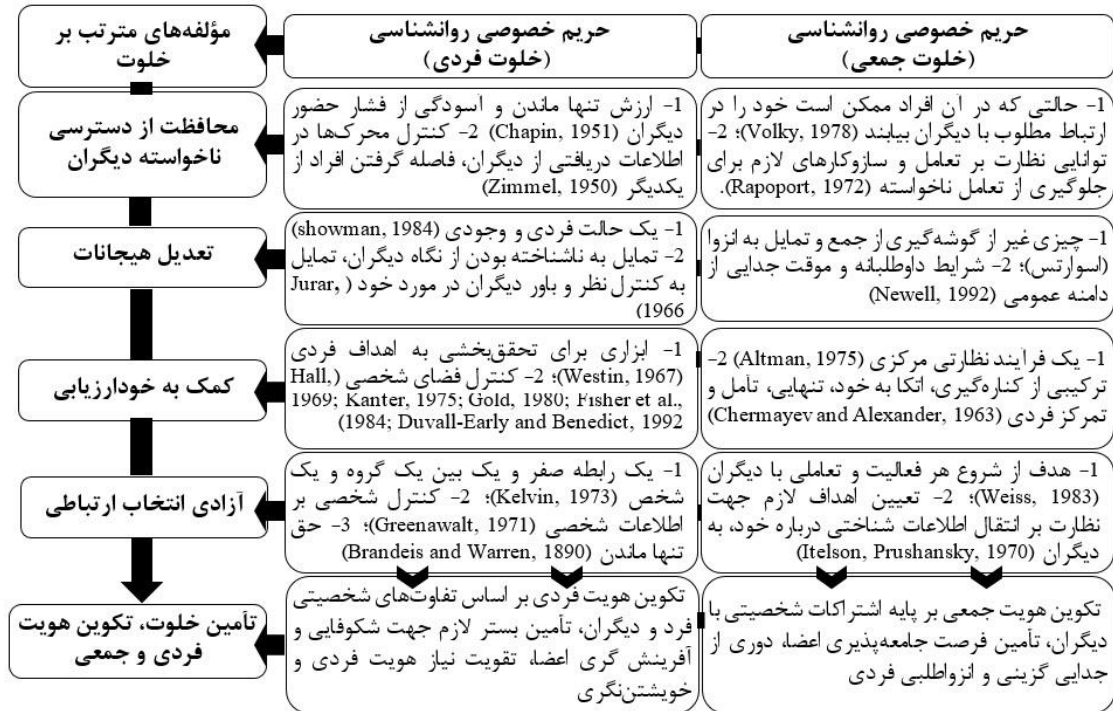 حریم خصوصی روانشناسی
(خلوت جمعی)
حریم خصوصی روانشناسی
(خلوت فردی)
مؤلفه‌های مترتب بر
خلوت
1- حالتی که در آن افراد ممکن است خود را در
ارتباط مطلوب با دیگران بیابند (Volky, 1978)؛ 2-
توانایی نظارت بر تعامل و سازوکارهای لازم برای
جلوگیری از تعامل ناخواسته (Rapoport, 1972).
1- ارزش تنها ماندن و آسودگی از فشار حضور
دیگران (Chapin, 1951) 2- کنترل محرک‌ها در
اطلاعات دریافتی از دیگران، فاصله گرفتن افراد از
یکدیگر (Zimmel, 1950)
محافظت از دسترسی
ناخواسته دیگران
1- چیزی غیر از گوشه‌گیری از جمع و تمایل به انزوا
(اسوارتس)؛ 2- شرایط داوطلبانه و موقت جدایی از
دامنه عمومی (Newell, 1992)
1- یک حالت فردی و وجودی (showman, 1984)
2- تمایل به ناشناخته بودن از نگاه دیگران، تمایل
به کنترل نظر و باور دیگران در مورد خود (Jurar,
1966)
تعدیل هیجانات
1- یک فرآیند نظارتی مرکزی (Altman, 1975) 2-
ترکیبی از کناره‌گیری، اتکا به خود، تنهایی، تأمل و
تمرکز فردی (Chermayev and Alexander, 1963)
1- ابزاری برای تحقق‌بخشی به اهداف فردی
(Westin, 1967)؛ 2- کنترل فضای شخصی (Hall,
1969; Kanter, 1975; Gold, 1980; Fisher et al.,
1984; Duvall-Early and Benedict, 1992)
کمک به خودارزیابی
1- هدف از شروع هر فعالیت و تعاملی با دیگران
(Weiss, 1983)؛ 2- تعیین اهداف لازم جهت
نظارت بر انتقال اطلاعات شناختی درباره خود، به
دیگران (Itelson, Prushansky, 1970)
1- یک رابطه صفر و یک بین یک گروه و یک
شخص (Kelvin, 1973)؛ 2- کنترل شخصی بر
اطلاعات شخصی (Greenawalt, 1971)؛ 3- حق
تنها ماندن (Brandeis and Warren, 1890)
آزادی انتخاب ارتباطی
تکوین هویت جمعی بر پایه اشتراکات شخصیتی با
دیگران، تأمین فرصت جامعه‌پذیری اعضا، دوری از
جدایی گزینی و انزواطلبی فردی
تکوین هویت فردی بر اساس تفاوت‌های شخصیتی
فرد و دیگران، تأمین بستر لازم جهت شکوفایی و
آفرینش گری اعضا، تقویت نیاز هویت فردی و
خویشتن‌نگری
تأمین خلوت، تکوین هویت
فردی و جمعی